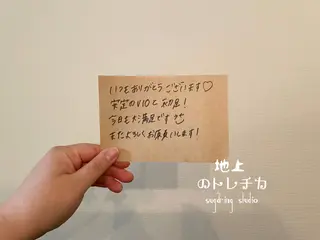 いつもありがとうございます♡
安定のVIOと初足！
今日も大満足です
またよろしくお願いします！
地上
のトレチカ
sugaring studio